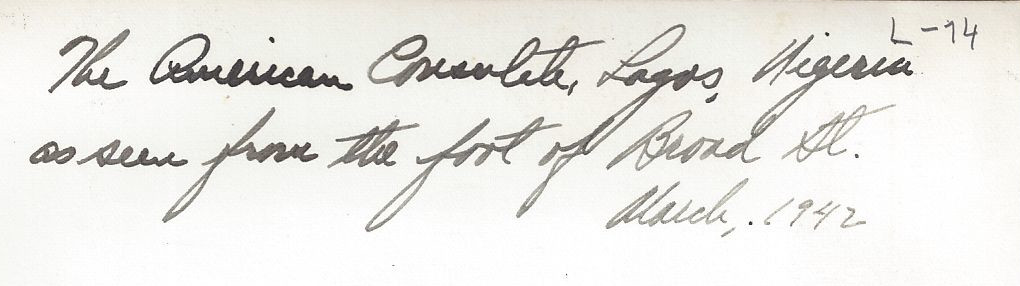 L-74
The American Consulate, Lagos, Nigeria
as seen from the foot of Broad St.
March, 1942